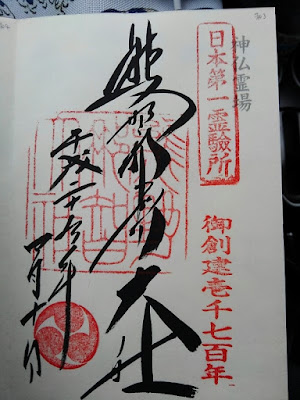 神仏霊場
日本第一霊驗所
御創建壱千七百年
熊野那智大社
平成二十
年
四月十
日